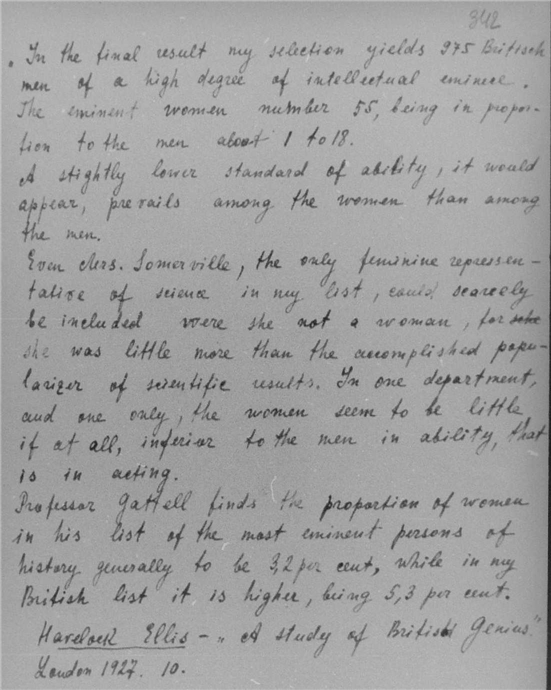 342
„In the final result my selection yields 975 Britisch
men of a high degree of intellectual eminece.
The eminent women number 55, being in propor-
tion to the men about 1 to 18.
A stightly lower standard of ability, it would
appear, prevails among the women than among
the men.
Even Mrs. Somerville, the only feminine repressen-
tative of science in my list, could scarcely
be included were she not a woman, for she
she was little more than the accomplished popu-
larizer of scientific results. In one department,
and one only, the women seem to be little,
if at all, inferior to the men in ability, that
is in acting.
Professor Gattell finds the proportion of women
in his list of the most eminent persons of
history generally to be 3,2 per cent, while in my
British list it is higher, being 5,3 per cent.
Havelock Ellis – „A study of British Genius."
London 1927. 10.